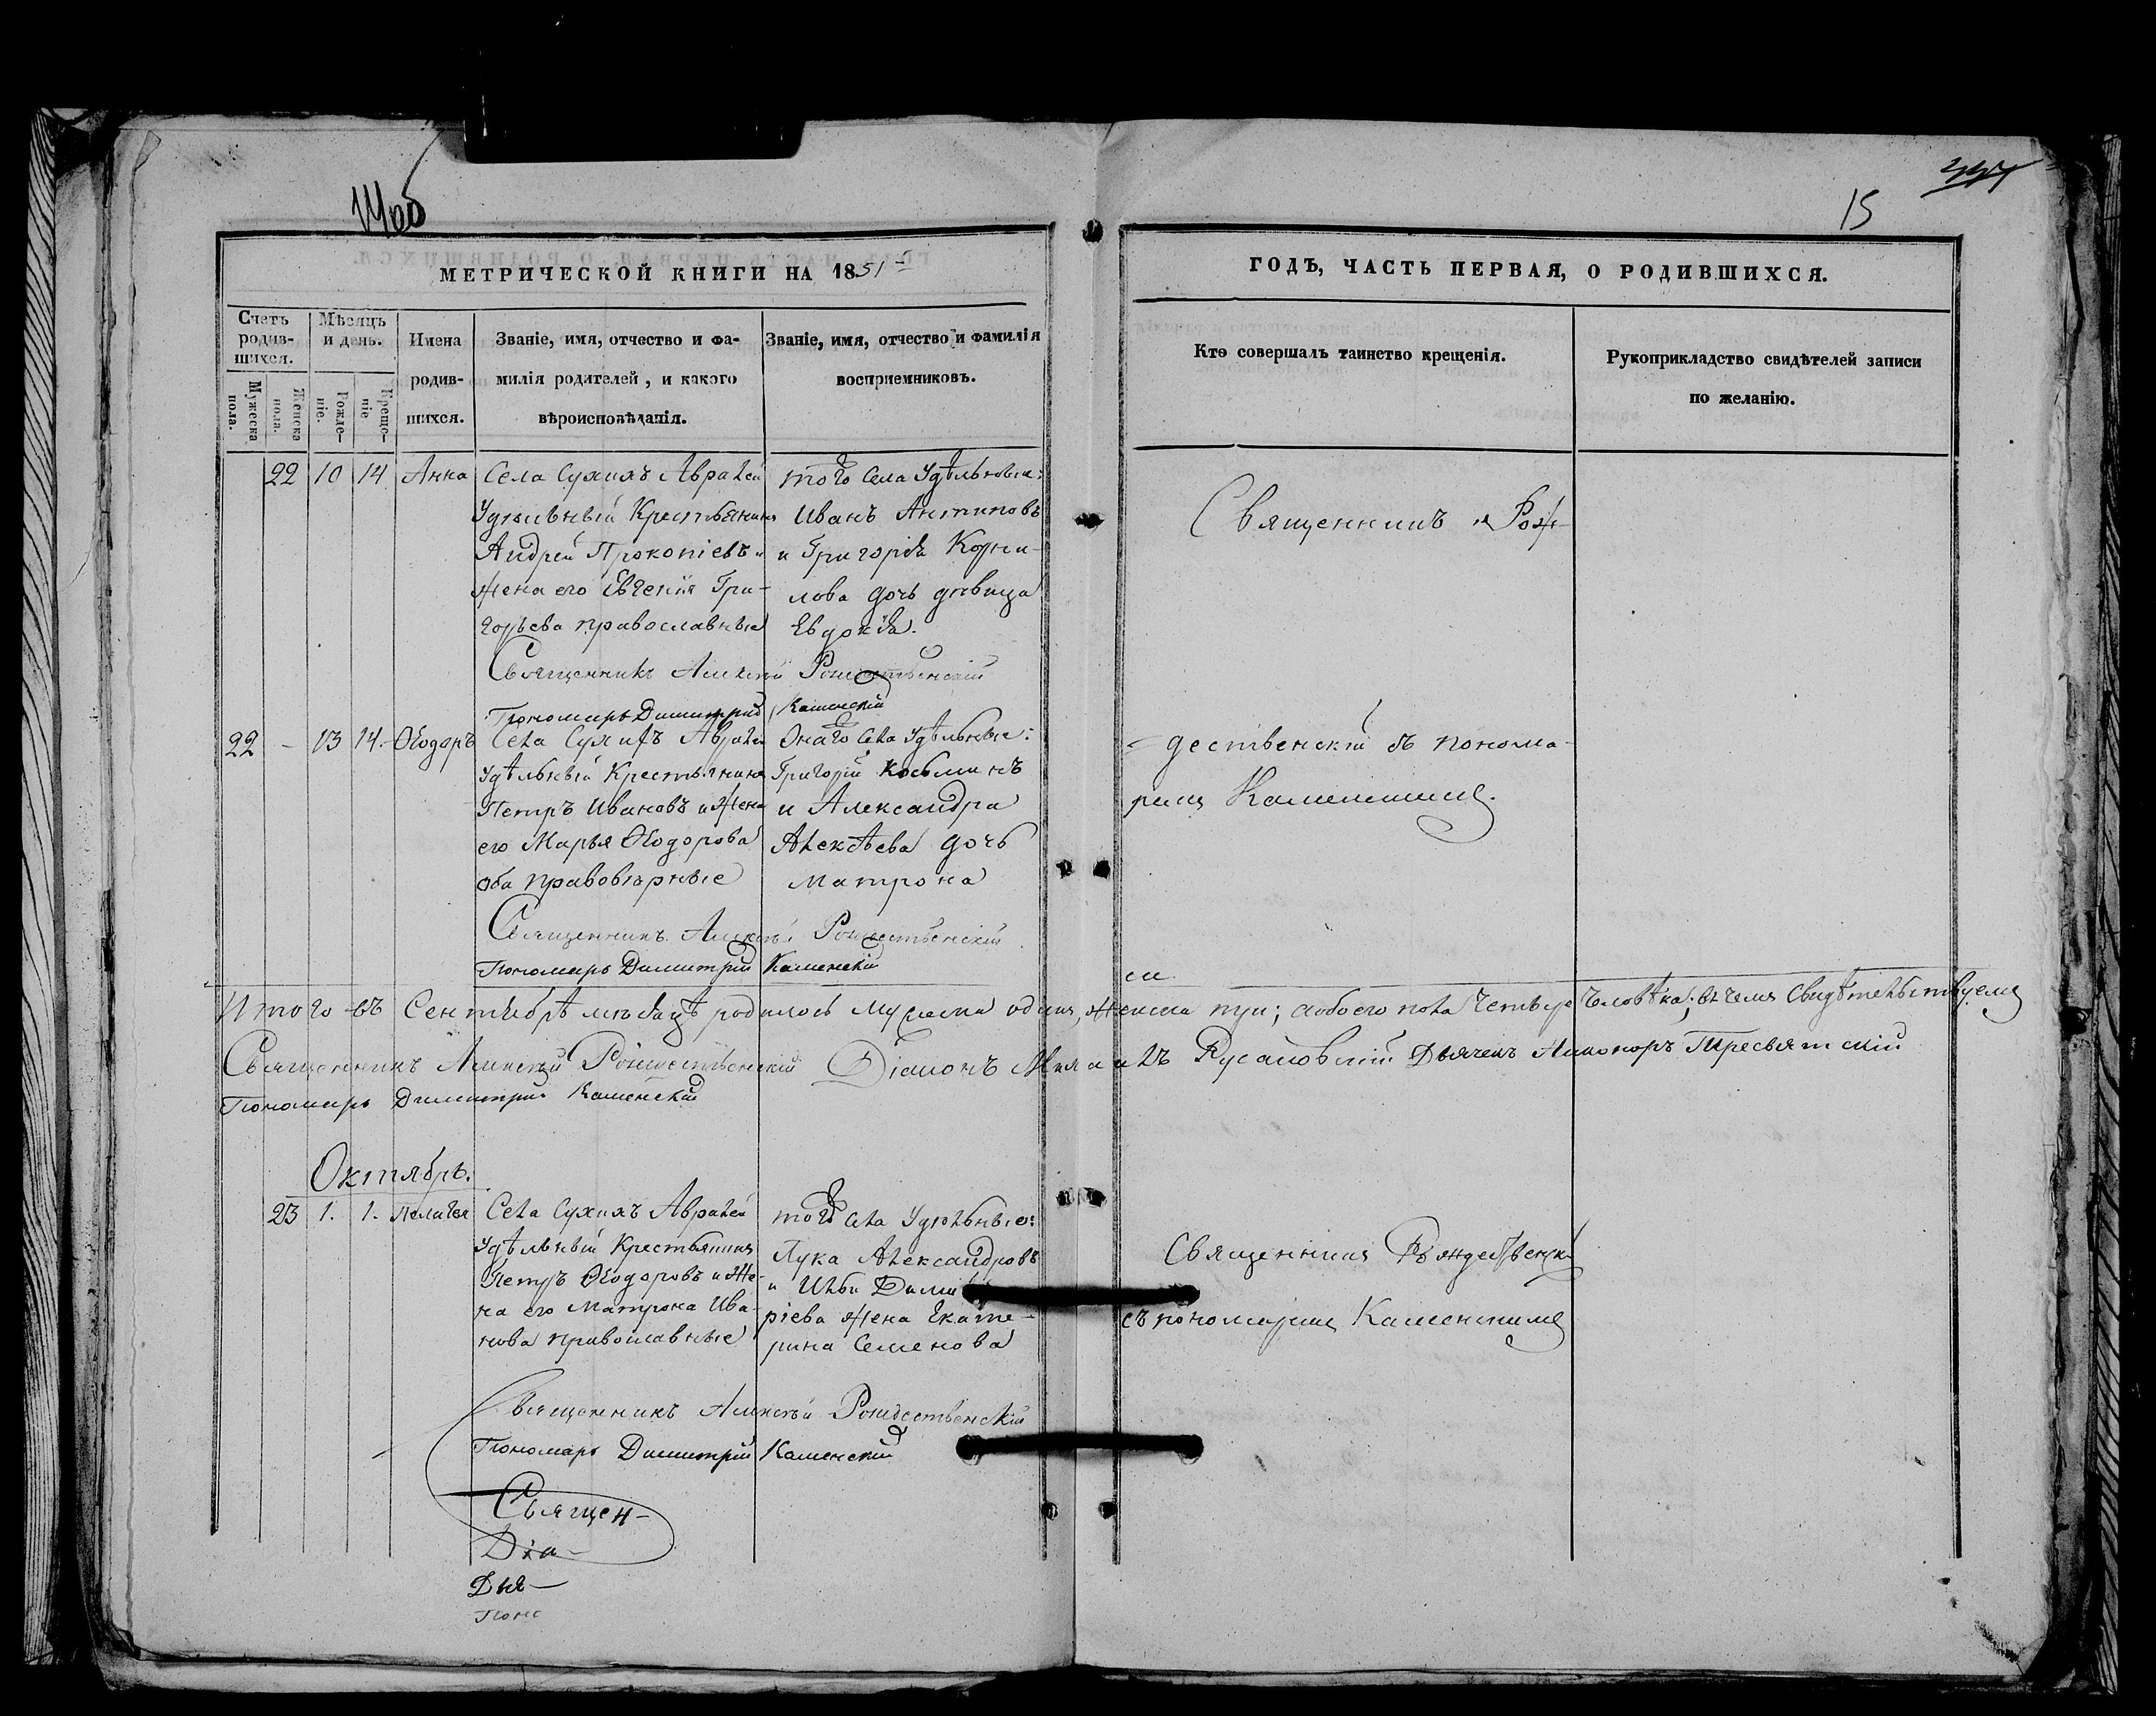 15
МЕТРИЧЕСКОЙ КНИГИ НА 1851
ГОДЪ, ЧАСТЬ ПЕРВАЯ, О РОДИВШИХСЯ.
Счетъ родив-шихся.
Мужеска пола.
Женска пола.
Мѣсяцъ и день.
Рожде-ніе.
Креще-ніе
Имена
родив-
шихся.
Званіе, имя, отчество и фа-
милія родителей, и какого
вѣроисповѣданія.
Званіе, имя, отчество и фамилія
восприемниковъ.
Кто совершалъ таинство крещенія.
Рукоприкладство свидѣтелей записи
по желанію.
22 10 14 Анна
Села Сухихъ Авралей
Удѣльный Крестьянинъ
Андрей Прокопіевъ и
жена его Евгенія Гри-
горьева православные
того Села Удѣльные:
Иванъ Антиповъ
и Григорія Корни-
лова дочь дѣвица
Евдокія.
Священникъ Рож-
Священникъ Алексѣй Рождественскій
Пономарь Димитрій Каменскій
22 - 13 14. Ѳеодоръ
Села Сухихъ Авралей
Удѣльный Крестьянинъ
Петръ Ивановъ и жена
его Марья Ѳеодорова
оба правовѣрные
Онаго Села Удѣльные:
Григорій Козьминъ
и Александра
Алексѣева дочь
Матрона
-дественскій съ понома-
ремъ Каменскимъ.
Священникъ Алексѣй Рождественскій
Пономарь Димитрій Каменскій
Итого въ Сентябрѣ мѣсяцѣ родилось мужеска одинъ, женска три; а обоего пола Четыре человѣка; въ чемъ Свидѣтельствуемъ
Священникъ Алексѣй Рождественскій Діаконъ Русановскій Дьячекъ Никаноръ Тресвятскій
Пономарь Димитрій Каменскій
Октябрь.
23 1. 1. Пелагея
Села Сухихъ Авралей
Удѣльный Крестьянинъ
Петръ Ѳеодоровъ и Же-
на его Матрона Ива-
нова православные
того Села Удѣльные:
Лука Александровъ
и Ильи Дими
ріева жена Екате-
рина Семенова
Священникъ Рождественскій
съ пономаремъ Каменскимъ
Священникъ Алексѣй Рождественскій
Пономарь Димитрій Каменскій
Священ-
Діа-
Дья-
Поно